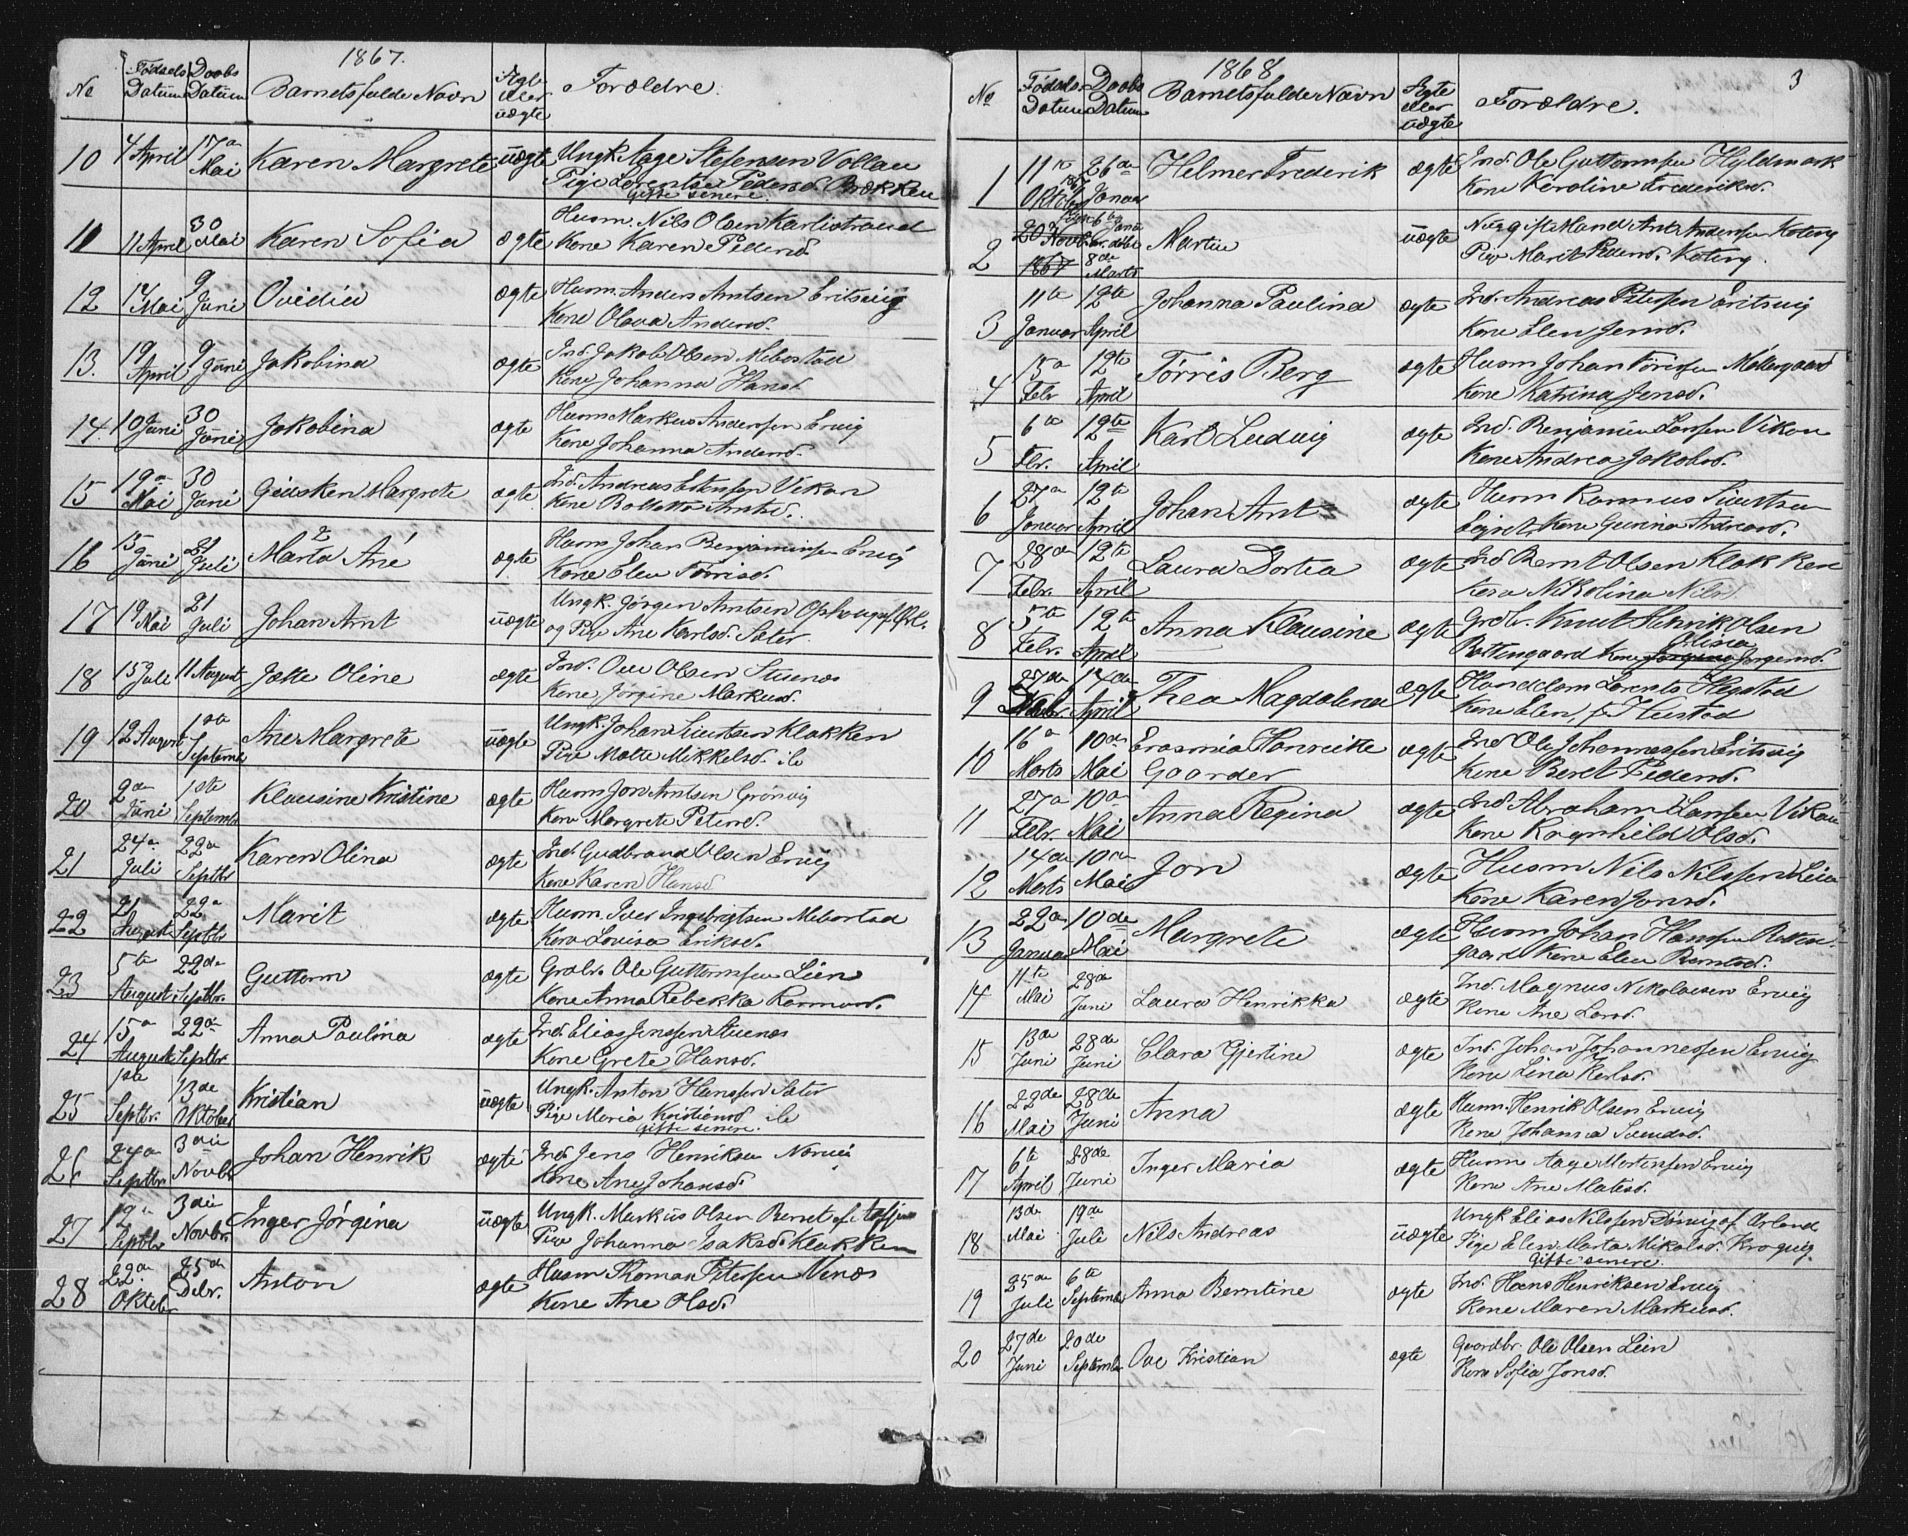 1867.
No Fødsels Datum Doobs Datum Barnets fulde Navn Ægte eller uægte Forældre.
10 4 April 17de Mai Karen Margrete uægte Ungk Aage Vollan
Pige Lorentse Pedersd. Brækken
Gifte senere.
11 11 April 30 Mai Karen Sofia ægte Husm. Nils Olsen Karlistrand
Kone Karen Pedersd.
12 17 Mai 9 Juni Ovidia ægte Husm. Anders Arntsen Eritsvig
Kone Olava Andersd.
13. 19 April 9 Juni Jakobina ægte Ind. Jakob Olsen Mebostad
Kone Johanna Hansd
14 10 Juni 30 Juni Jakobina ægte Husm Markus Anderssen Ervig
Kone Johanna Andersd.
15 19de Mai 30 Juni Gidsken Margrete ægte Ind. Andreas Estensen Vikan
Kone Bolletta Arntsd.
16 15 Juni 21 Juli Marta Ane ægte Husm Johan Benjaminsen Ervig
Kone Elen Tørrisd.
17 19 Mai 21 Juli Johan Arnt uægte Ungk. Jørgen Arntsen
og Pige Ane Karlsd. Sæter
18 15 Juli 11 August Jakke Oline ægte Ind. Ove Olsen Stuenæs
Kone Jørgine Markusd.
19 12 August 1ste September Ane Margrete uægte Ungk. Johan Sivertsen Klakken
Pige Malte Mikkelsd. ib
20 2den Juni 1ste September Klausine Kristine ægte Husm Jon Arntsen Grønvig
Kone Margrete Petersd.
21 24de Juli 22de Septbr Karen Olina ægte Ind. Gudbrand Olsen Ervig
Kone Karen Hansd
22 21 August 22de Septbr Marit ægte Husm. Iver Ingebrigtsen Mebostad
Kone Lovisa Eriksd.
23 5te August 22de Septbr. Guttorm ægte Grdbr. Ole Guttormsen Lien
Kone Anna Rebekka Rasmusd.
24 15de August 22de Septbr. Anna Paulina ægte Ind. Elias Jenssen Stuenæs
Kone Grete Hansd.
25 1ste Septbr. 13de Oktober Kristian uægte Ungk. Anton Hanssen Sæter
Pige Maria Kristiansd ib
Gifte senere.
26 24de Septbr. 3die Novbr Johan Henrik ægte Ind. Jens Henriksen Norvig
Kone Ane Johansd.
27 12te Septbr 3die Novbr. Inger Jørgina uægte Ungk. Markus Olsen Berset
Pige Johanna Isaksd. Klakken
28 22de Oktobr 25de Debr. Anton ægte Husm Thomas Petersen Venæs
Kone Ane Olsd.
1868 3
No Fødsels Datum Doobs Datum Barnets fulde Navn Ægte eller uægte Forældre.
1 11te Oktober 26de Januar Helmer Frederik ægte Ind. Ole Guttormsen Hyldmark
Kone Karoline Frederiksd.
2 20de Novbr 1867 8de Marts Martin uægte Nygift Mand Arnt Anderssen Koteng
Pige Marit Pedersd. Koteng.
3 11te Januar 12te April Johanna Paulina ægte Ind. Andreas Petersen Eritsvig
Kone Elen Jensd.
4 15de Febr 12te April Tørris Berg ægte Husm Johan Tørrissen Møllergaard
Kone Katrina Jensd.
5 6te Febr. 12te April Karl Ludvig ægte Ind. Benjamin Larssen Vikan
Kone Andrea Jakobsd.
6 27de Januar 12te April Johan Arnt ægte Husm Rasmus Sivertsen
Kone Gurina Andreasd.
7 28de Febr. 12te April Laura Dortea ægte Ind Bernt Olsen Klakken
Kone Nikolina Nilsd
8 5te Febr. 12te April Anna Klausine ægte Grdbr. Knut Henrik Olsen
Rottengaard Kone Olisa Jørgensd.
9 27de 14de April Thea Magdalena ægte Handelsm Lorents Hegstad
Kone Elen, f. Heistad
10 16de Marts 10de Mai Erasmia Hanriette Gaarder ægte Ind Ole Johannessen Eritsvig
Kone Beret Pedersd.
11 27de Febr. 10de Mai Anna Regina ægte Ind. Abraham Hanssen Vikan
Kone Ragnhild Olsd.
12 14de Marts 10de Mai Jon ægte Husm Nils Nilssen Lien
Kone Karen Jonsd.
13 22de Januar 10de Mai Margrete ægte Husm Johan Hanssen Rotten-
gaard Kone Elen Berntsd.
14 11te Mai 28de Juni Laura Henrikka ægte Ind. Magnus Nikolaisen Ervig
Kone Ane Larsd.
15 13de Juni 28de Juni Clara Gjertine ægte Ind. Johan Johannessen Ervig
Kone Lina Karlsd.
16 22de Mai 28de Juni Anna ægte Husm. Henrik Olsen Ervig
Kone Johanna Svendsd.
17 6te April 28de Juni Inger Maria ægte Husm Aage Mortenssen Ervig
Kone Ane Matesd.
18 13de Mai 19de Juli Nils Andreas uægte Ungk Elias Nilssen Døsvig af Ørland
Pige Elen Marta Mikalsd. Krogvig.
Gifte senere.
19 25de Juli 6te September Anna Berntine ægte Ind. Hans Henriksen Ervig
Kone Maren Markusd.
20 27de Juni 20de September Ove Kristian ægte Gaardbr. Ole Olsen Lien
Kone Sofia Jonsd.